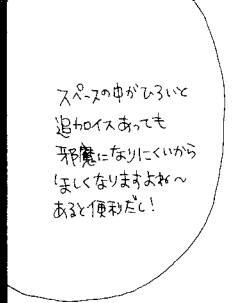 スペースの中がひろいと
追加イスあっても
邪魔になりにくいから
ほしくなりますよね～
あると便利だし！